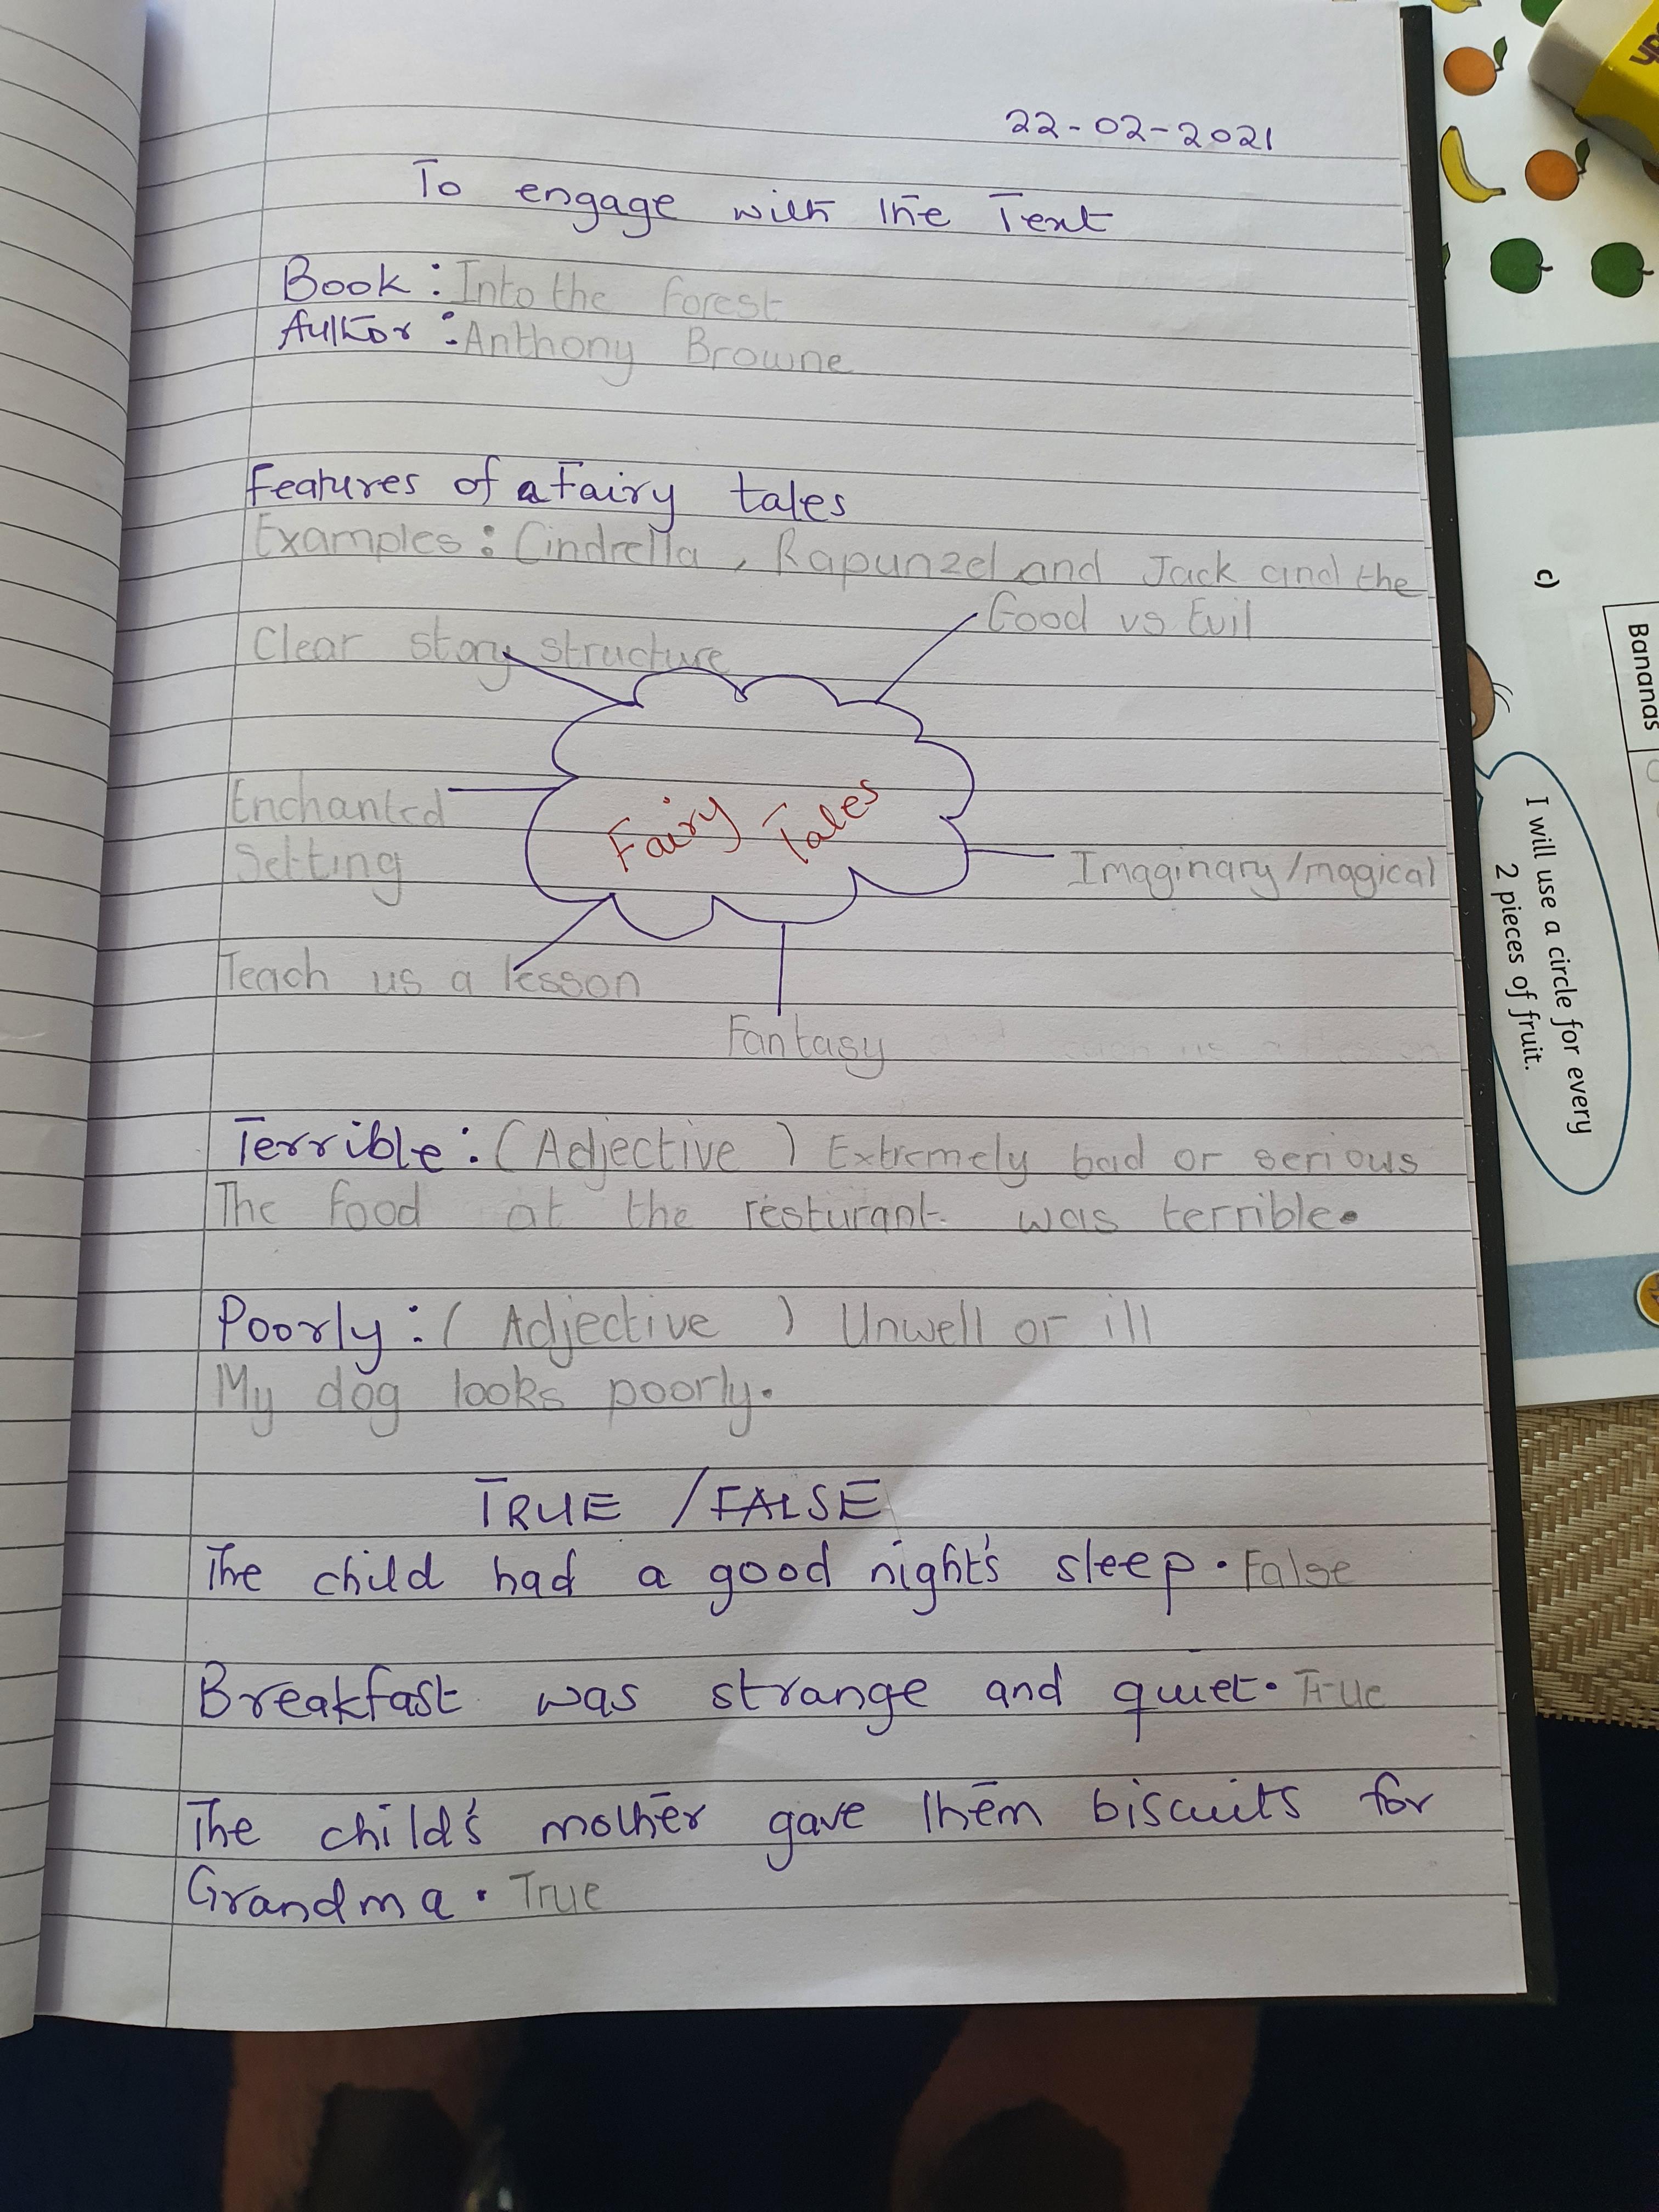 22-02-2021
To engage with the Text
Book : Into the Forest
Author : Anthony Browne
Features of a Fairy tales
Examples : Cindrella, Rapunzel and Jack and the
Good vs Evil
Clear story structure
Enchanted
Setting
Fairy Tales
Imaginary/magical
Teach us a lesson
Fantasy
Terrible : (Adjective) Extremely bad or serious
The food at the resturant was terrible.
Poorly : (Adjective) Unwell or ill
My dog looks poorly.
TRUE / FALSE
The child had a good night's sleep. False
Breakfast was strange and quiet. True
The child's mother gave them biscuits for
Grandma. True
c)
Bananas
I will use a circle for every
2 pieces of fruit.